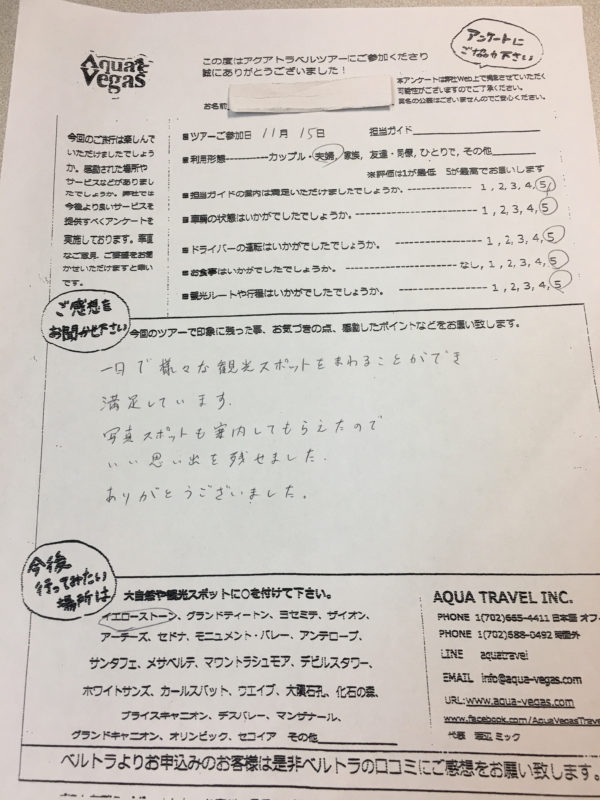 Aqua
Vegas
この度はアクアトラベルツアーにご参加くださり
誠にありがとうございました！
アンケートに
ご協力下さい
本アンケートは弊社Web上で掲載させていただく
可能性がございますのでご了承ください。
実名の公表はございませんのでご安心ください。
お名前
今回のご旅行は楽しんで
いただけましたでしょう
か。感動された場所や
サービスなどがありまし
たでしょうか。弊社では
今後より良いサービスを
提供すべくアンケートを
実施しております。率直
なご意見、ご要望をお聞
かせいただけますと幸い
です。
■ツアーご参加日 11月 15日 担当ガイド
■利用形態-----------カップル・夫婦, 家族, 友達・同僚, ひとりで, その他
※評価は1が最低 5が最高でお願いします
■担当ガイドの案内は満足いただけましたでしょうか。------------- 1 , 2, 3, 4, 5
■車輌の状態はいかがでしたでしょうか。------------------- 1 , 2, 3, 4, 5
■ドライバーの運転はいかがでしたでしょうか。---------------- 1 , 2, 3, 4, 5
■お食事はいかがでしたでしょうか。---------------- なし, 1 , 2, 3, 4, 5
■観光ルートや行程はいかがでしたでしょうか。---------------- 1 , 2, 3, 4, 5
ご感想を
お聞かせ下さい
今回のツアーで印象に残った事、お気づきの点、感動したポイントなどをお願い致します。
一日で様々な観光スポットをまわることができ
満足しています.
写真スポットも案内してもらえたので
いい思い出を残せました.
ありがとうございました。
今後
行ってみたい
場所は
大自然や観光スポットに○を付けて下さい。
イエローストーン、グランドティートン、ヨセミテ、ザイオン、
アーチーズ、セドナ、モニュメント・バレー、アンテロープ、
サンタフェ、メサベルデ、マウントラシュモア、デビルスタワー、
ホワイトサンズ、カールスバット、ウエイブ、大隕石孔、化石の森、
ブライスキャニオン、デスバレー、マンザナール、
グランドキャニオン、オリンピック、セコイア その他
AQUA TRAVEL INC.
PHONE 1(702)665-4411 日本語 オフ
PHONE 1(702)588-0492 時間外
LINE aquatravel
EMAIL info@aqua-vegas.com
URL:www.aqua-vegas.com
www.facebook.com/AquaVegasTrave
代表 渡辺 ミック
ベルトラよりお申込みのお客様は是非ベルトラの口コミにご感想をお願い致します。